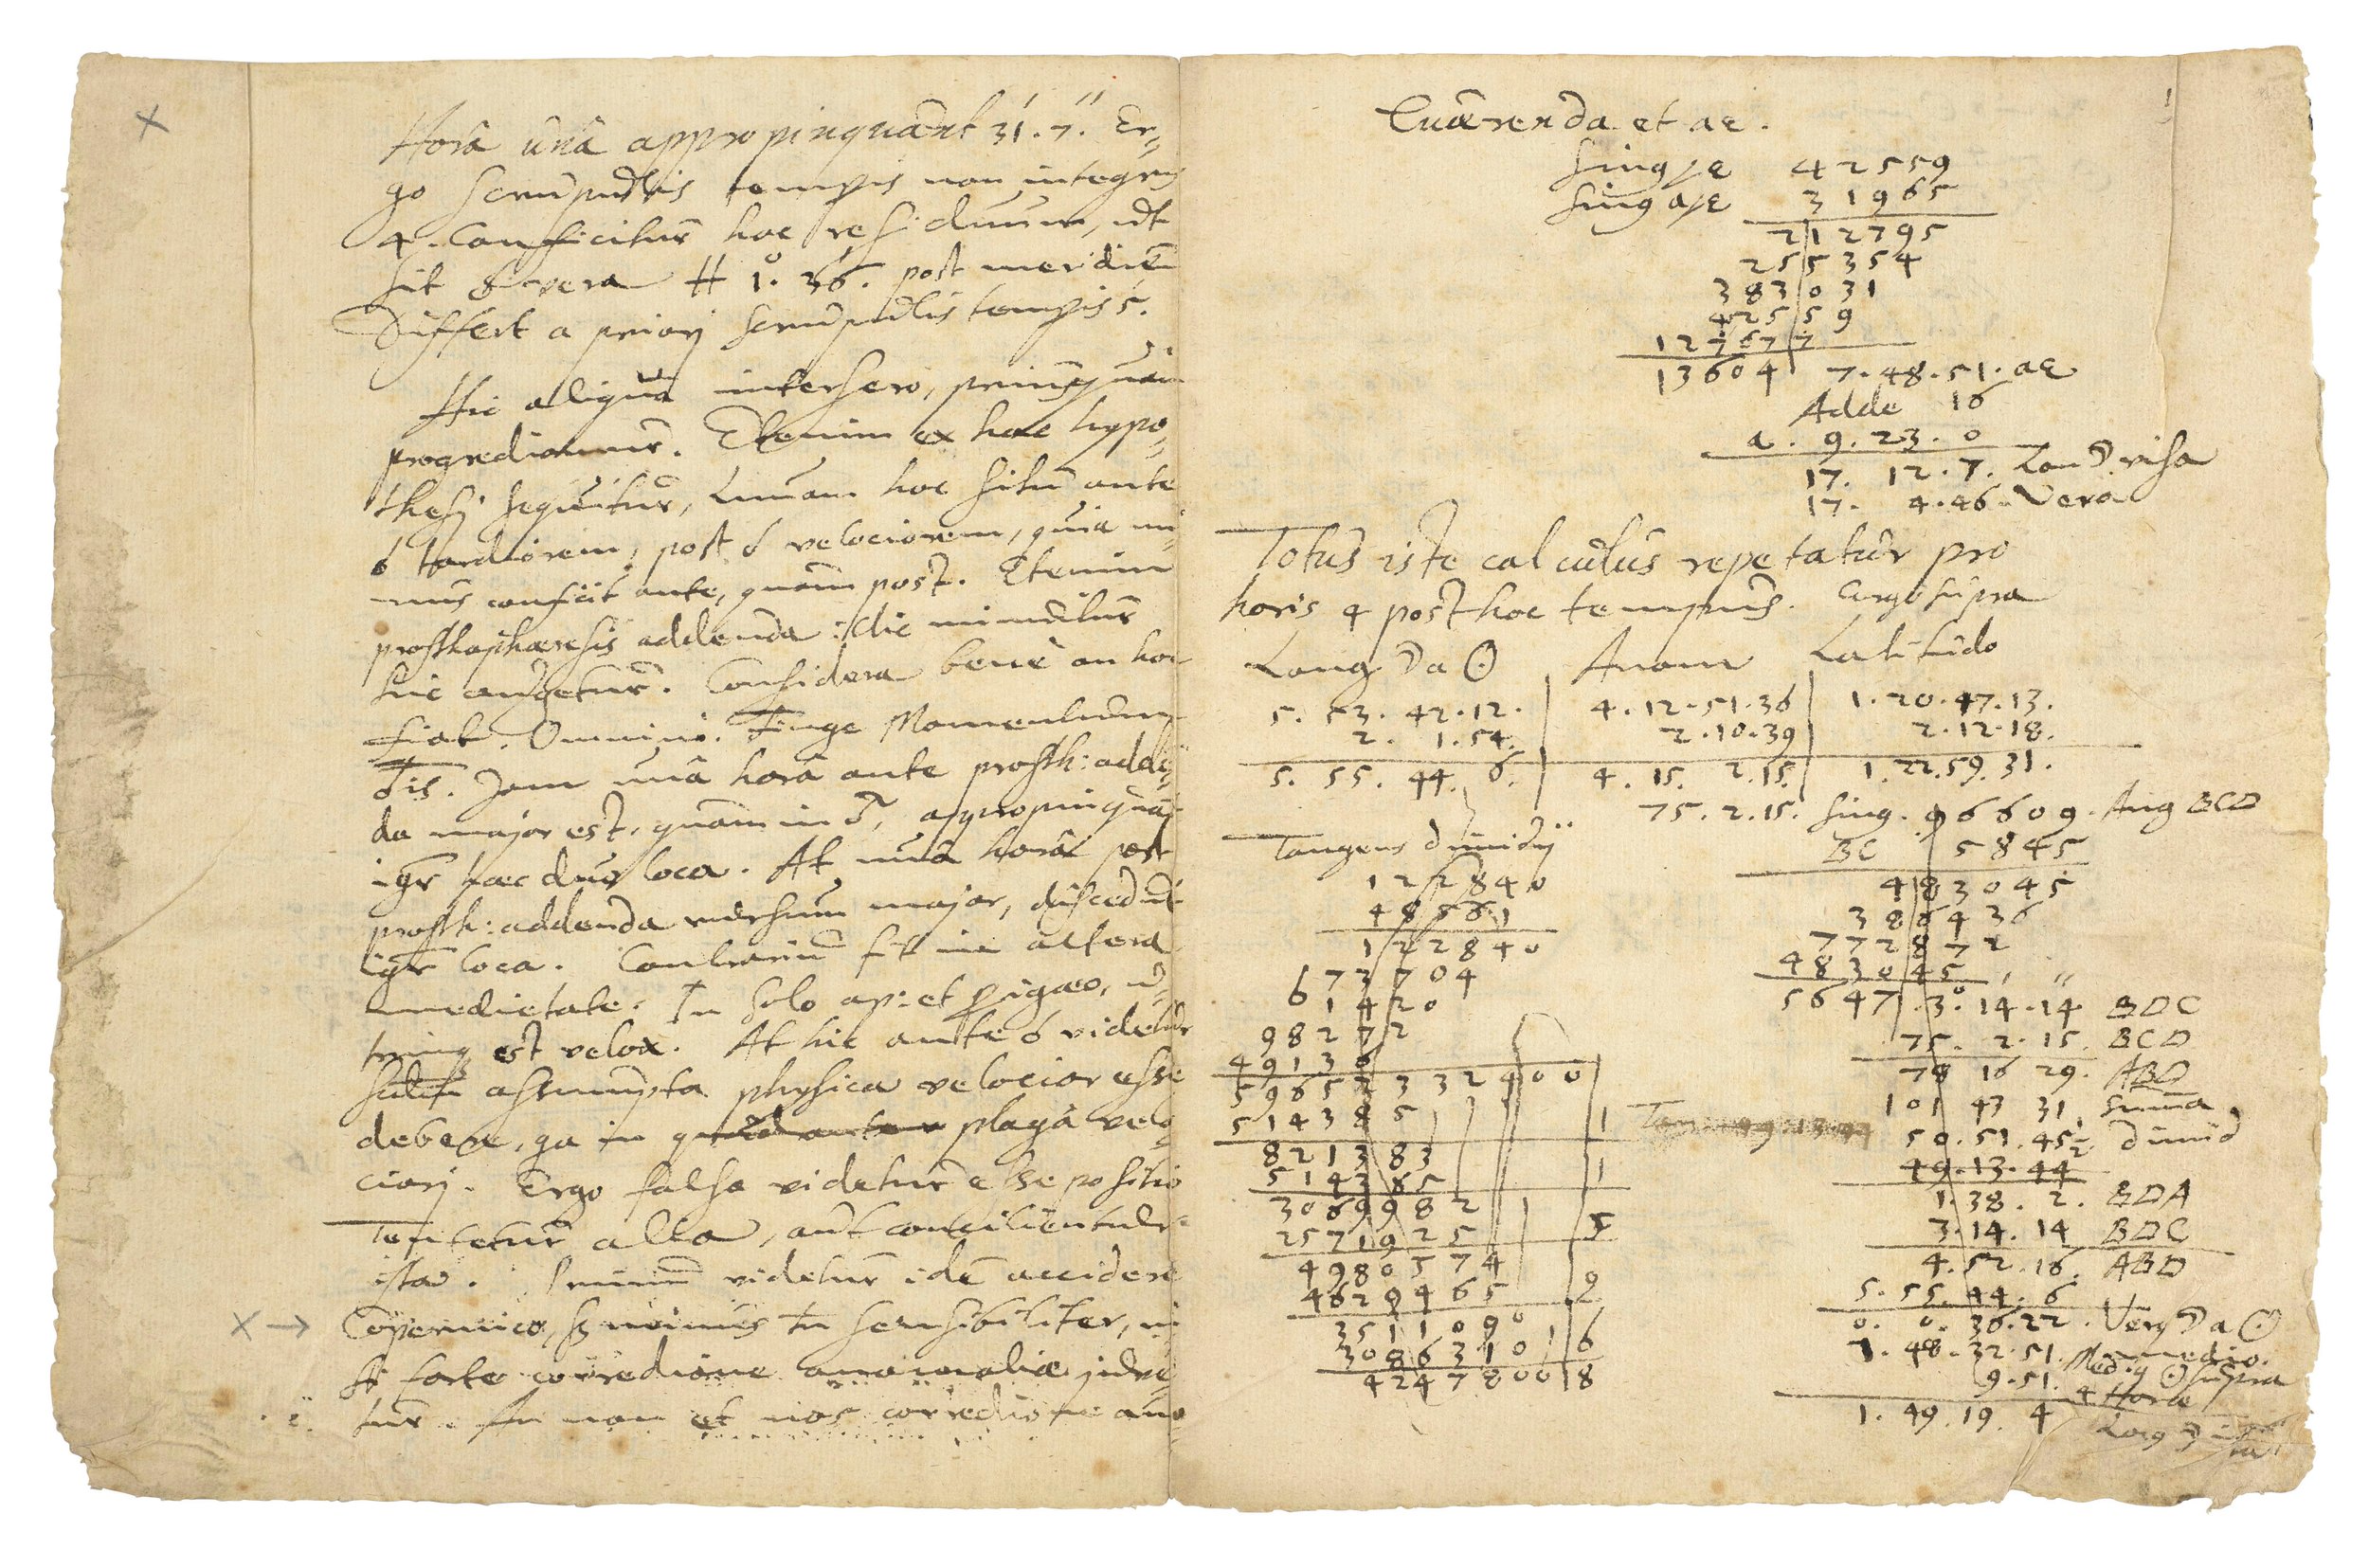 Horâ unâ appropinquant 31'. 7''. Er-
go scrupulis temporis non integris
4. conficitur hoc residuum, ut
sit ☌ vera H 1°. 36'. post meridiem
Differt a priori scrupulis temporis 5.
Hic aliqua intersero, priusquam
progrediamur. Etenim ex hac hypo-
thesi sequitur, Lunam hoc situ ante
☌ tardiorem, post ☌ velociorem, quia mi-
nus conficit ante, quam post. Etenim
prosthaphaeresis addenda: illic minuitur
hic augetur. Considera bene an hoc
fiat. Omnino. Finge Momentum
☌is. Jam unâ horâ ante prosth: adde-
da major est, quam in ☌, appropinquant
igr haec duo loca. At unâ horâ post
prosth: addenda rursum major, discedunt
igr loca. Contrarium fit in altera
medietate. In solo ap: et perigaeo, u-
trinque est velox. At hic ante ☌ videtur
assumpta physica velocior esse
debere, qa in plagâ velo-
ciori. Ergo falsa videtur esse positio
Tentetur alia, aut concilientur
ista. Primum videtur idem accidere
X → Copernico, sed minus tn sensibiliter, ni
si forte correctione anomaliae juve-
tur. An non et nos correctione ano
X
Quaerenda et ae.
42559
31965
212795
255354
383031
42559
127677
13604 7. 48. 51. ae
Adde 16
a. 9. 23. 0
17. 12. 7. Lon ☽ visa
17. 4. 46. Vera
Totus iste calculus repetatur pro
horis 4 post hoc tempus. Ergo supra
Long ☽ a ☉ Anom Latitudo
5. 53. 42. 12. 4. 12. 51. 36 1. 20. 47. 13.
2. 1. 54. 2. 10. 39 2. 12. 18.
5. 55. 44. 6. 4. 15. 2. 15. 1. 22. 59. 31.
75. 2. 15. Sinq. 96609. Ang BCD
BC 5845
483045
386436
772872
483045
5647. 3°. 14'. 14'' BDC
75. 2. 15. BCD
78 16 29. ABD
101 43 31 Summa
50. 51. 45½ dimid
49. 13. 44
1. 38. 2. BDA
3. 14. 14 BDC
4. 52. 16. ABD
5. 55. 44. 6
0. 0. 36. 22. Very ☽ a ☉
medio.
1. 48. 32. 51. Mediq ☉ supra
9. 51. 4 Horae
1. 49. 19. 4
Tangens dimidij
122840
48561
122840
673704
61420
98272
491360
5965233240 0
514385 1
821383
514385 1
3069982
2571925 5
4980574
4629465 9
3511090
3086310 6
4247800 8